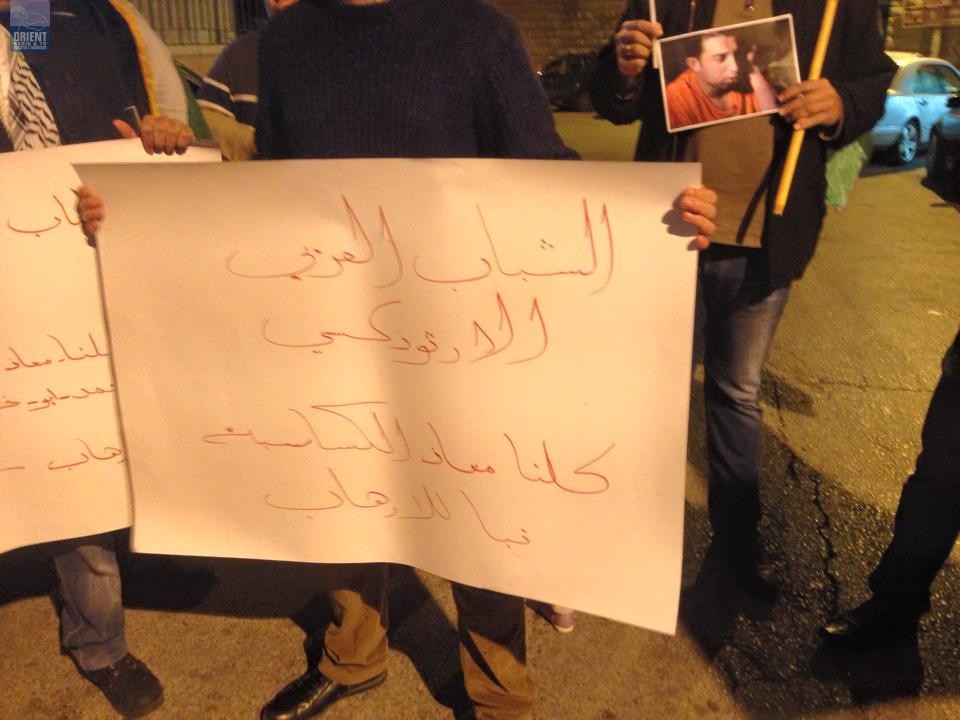 ORIENT
RADIO & TV
الشباب العربي
الارثوذكسي
كلنا معاذ الكساسبة
تبا للارهاب
ـاب
كلنا-معاذ
ـمد-ابو-خـ
ـرهاب -